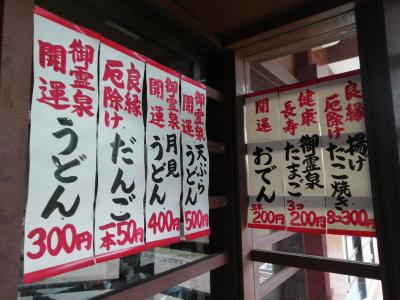 御霊泉
開運
うどん
300円
良縁
厄除け
だんご
一本50円
御霊泉
開運
月見
うどん
400円
御霊泉
天ぷら
うどん
500円
開運
おでん
三本200円
健康
長寿
御霊泉
たまご
3コ200円
良縁
厄除け
揚げ
たこ焼き
8コ300円